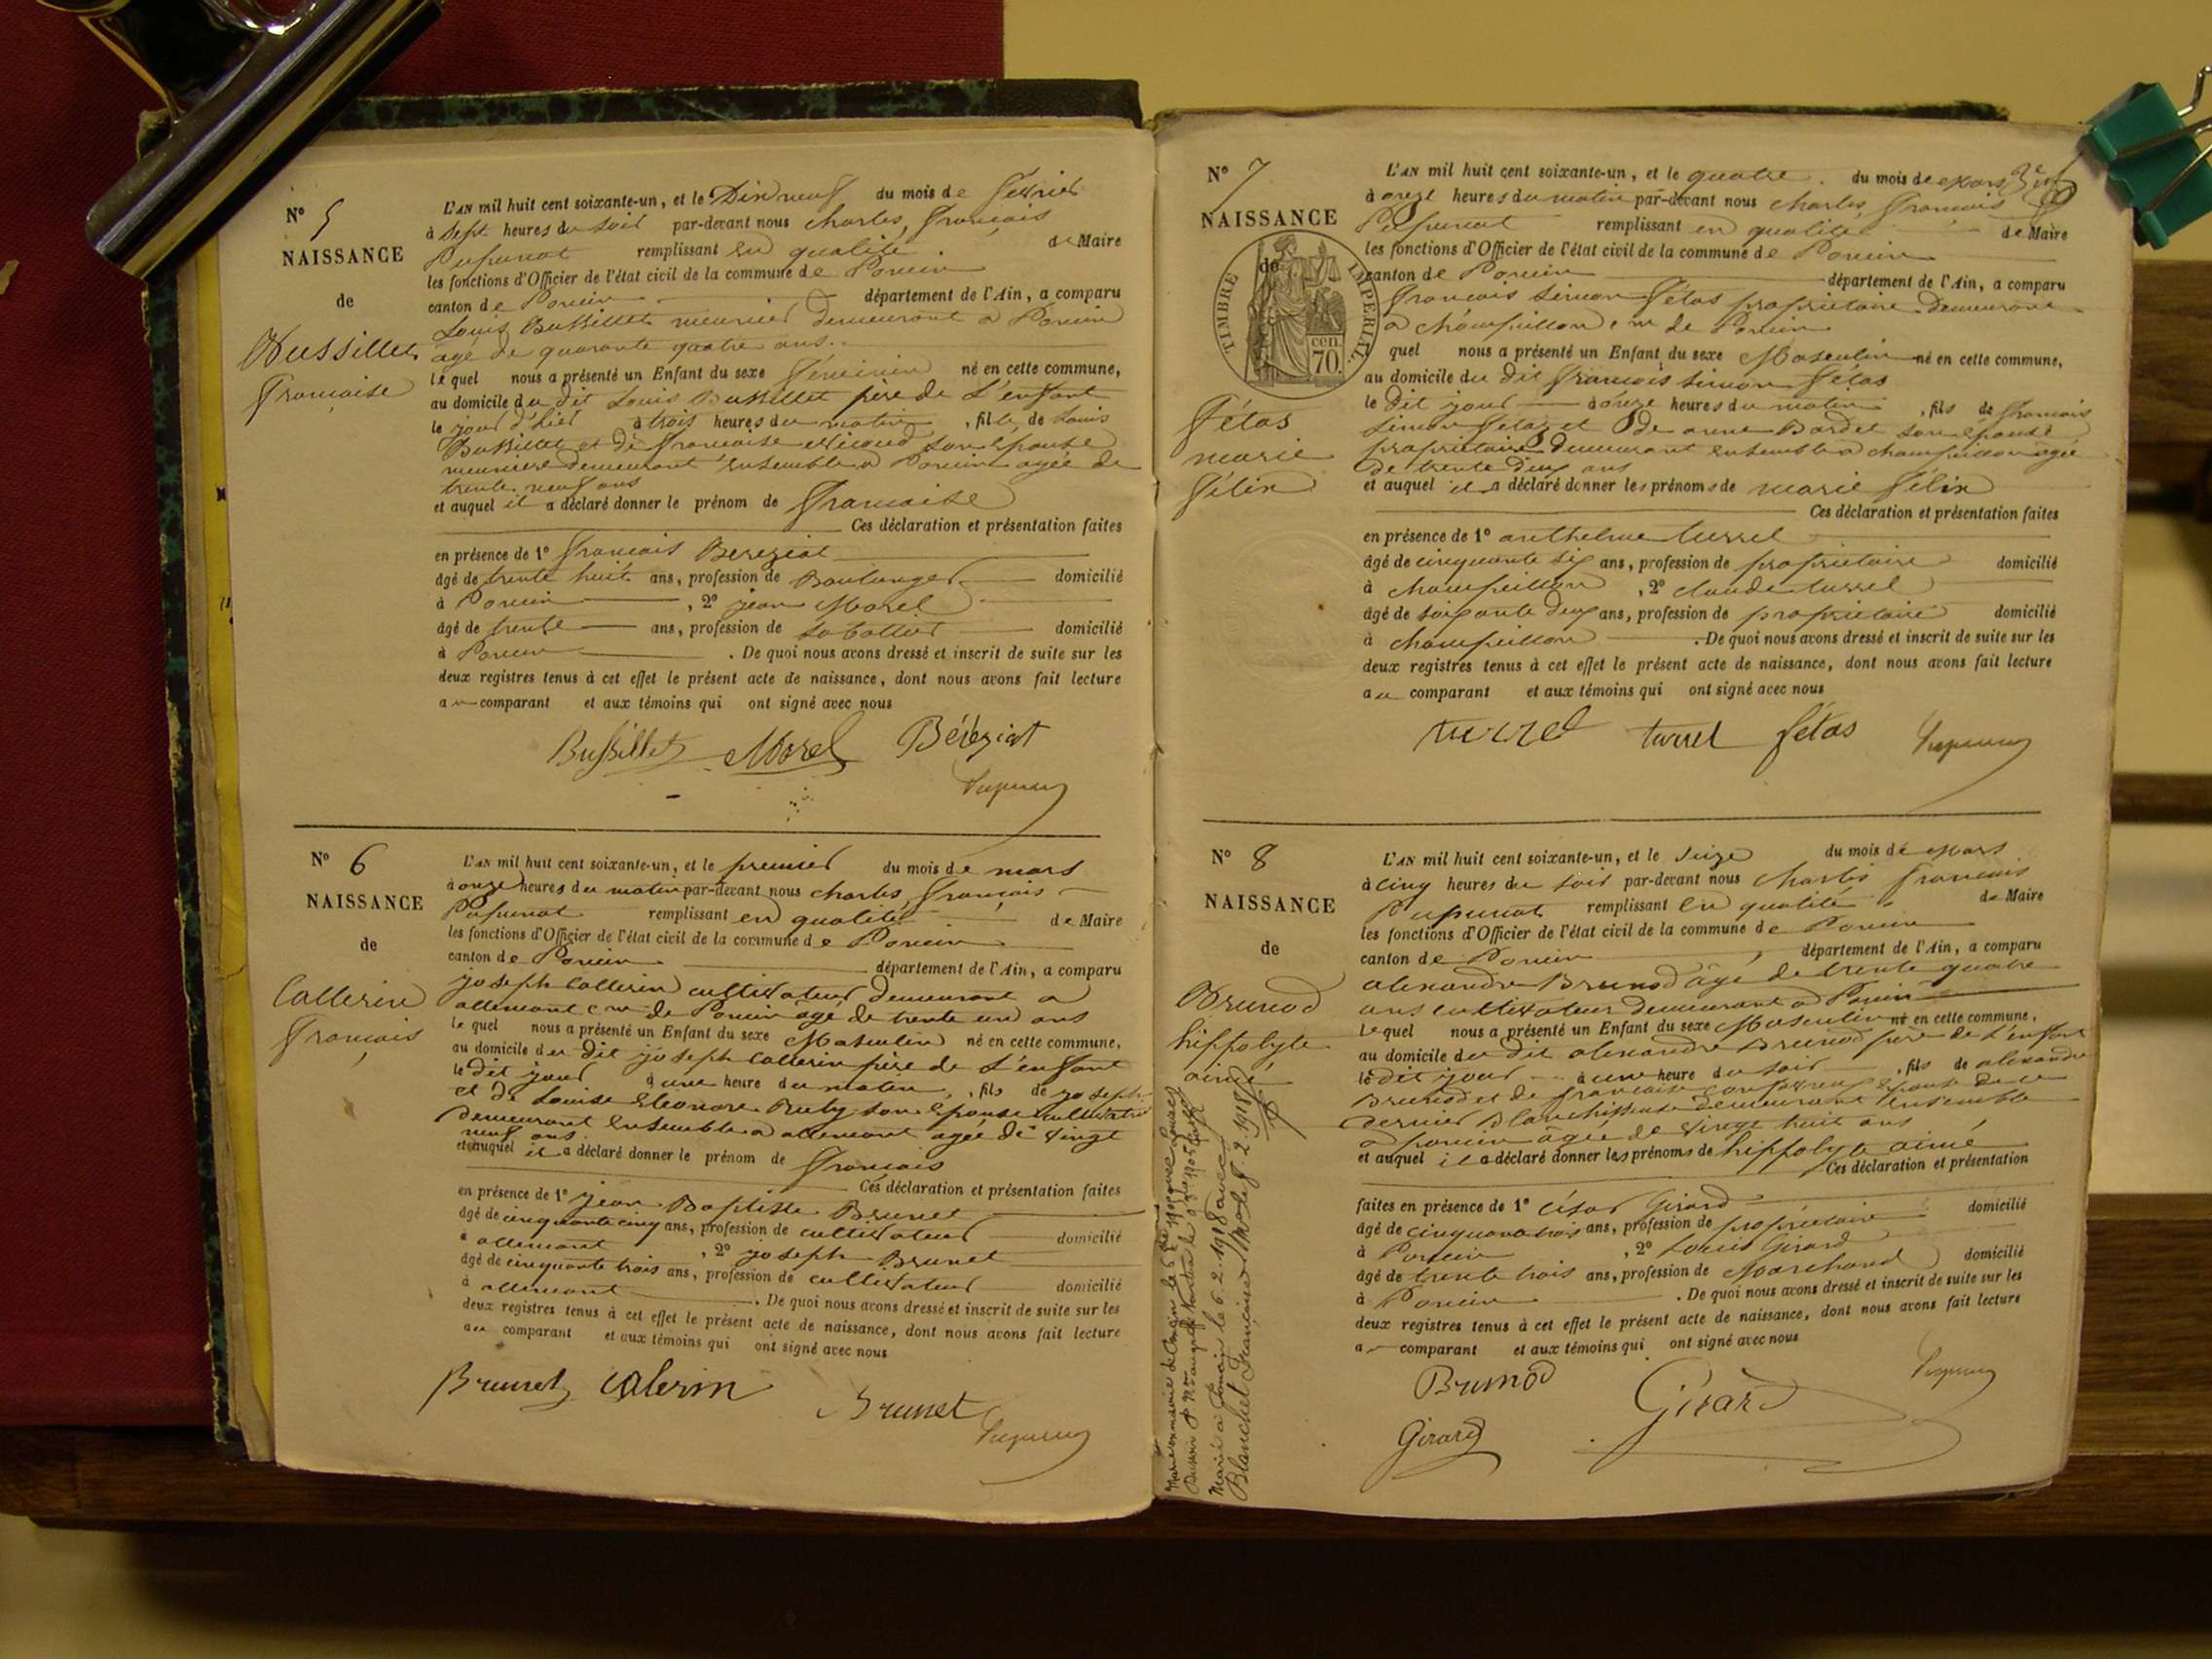 N° 5
NAISSANCE
de
Bussillet
Françoise
L'AN mil huit cent soixante-un, et le Dix neuf du mois de février
à Sept heures du soir par-devant nous charles, françois
remplissant en qualité de Maire
les fonctions d'Officier de l'état civil de la commune de Poncin
canton de Poncin département de l'Ain, a comparu
Louis Bussillet meunier demeurant a Poncin
agé de quarante quatre ans.
lequel nous a présenté un Enfant du sexe féminin né en cette commune,
au domicile du dit Louis Bussillet père de L'enfant
le jour d'hier à trois heures du matin, fille de Louis
Bussillet et de françoise son épouse
meuniere demeurant ensemble a Poncin agée de
trente neuf ans
et auquel il a déclaré donner le prénom de françoise
Ces déclaration et présentation faites
en présence de 1° françois Bereziat
âgé de trente huit ans, profession de Boulanger domicilié
à Poncin, 2° jean Morel
âgé de trente ans, profession de sabottier domicilié
à Poncin. De quoi nous avons dressé et inscrit de suite sur les
deux registres tenus à cet effet le présent acte de naissance, dont nous avons fait lecture
au comparant et aux témoins qui ont signé avec nous
Bussillet Morel Béréziat
N° 6
NAISSANCE
de
Collerin
François
L'AN mil huit cent soixante-un, et le premier du mois de mars
à onze heures du matin par-devant nous charles, françois
remplissant en qualité de Maire
les fonctions d'Officier de l'état civil de la commune de Poncin
canton de Poncin département de l'Ain, a comparu
joseph Collerin cultivateur demeurant a
allement cne de Poncin agé de trente un ans
lequel nous a présenté un Enfant du sexe Masculin né en cette commune,
au domicile du dit joseph Collerin père de L'enfant
le dit jour à une heure du matin, fils de joseph
et de Louise Eleonore son épouse cultivatrice
demeurant ensemble a allement agée de vingt
neuf ans
et auquel il a déclaré donner le prénom de françois
Ces déclaration et présentation faites
en présence de 1° jean Baptiste Brunet
âgé de cinquante cinq ans, profession de cultivateur domicilié
à allement, 2° joseph Brunet
âgé de cinquante trois ans, profession de cultivateur domicilié
à allement. De quoi nous avons dressé et inscrit de suite sur les
deux registres tenus à cet effet le présent acte de naissance, dont nous avons fait lecture
au comparant et aux témoins qui ont signé avec nous
Brunet Colerin Brunet
N° 7
NAISSANCE
de
TIMBRE IMPÉRIAL
70 cen.
Fétas
marie
félix
L'AN mil huit cent soixante-un, et le quatre du mois de Mars
à onze heures du matin par-devant nous charles, françois
remplissant en qualité de Maire
les fonctions d'Officier de l'état civil de la commune de Poncin
canton de Poncin département de l'Ain, a comparu
françois simon fétas propriétaire demeurant
a champeillon cne de Poncin
quel nous a présenté un Enfant du sexe Masculin né en cette commune,
au domicile du dit françois simon fétas
le dit jour à onze heures du matin, fils de françois
simon fétas et de anne Bordet son épouse
propriétaire demeurant ensemble a champeillon agée
de trente deux ans
et auquel il a déclaré donner les prénoms de marie félix
Ces déclaration et présentation faites
en présence de 1° anthelme turrel
âgé de cinquante six ans, profession de propriétaire domicilié
à champeillon, 2° claude turrel
âgé de soixante deux ans, profession de propriétaire domicilié
à champeillon. De quoi nous avons dressé et inscrit de suite sur les
deux registres tenus à cet effet le présent acte de naissance, dont nous avons fait lecture
au comparant et aux témoins qui ont signé avec nous
turrel turrel fétas
N° 8
NAISSANCE
de
Brunod
hippolyte
aimé
L'AN mil huit cent soixante-un, et le seize du mois de Mars
à cinq heures du soir par-devant nous charles françois
remplissant en qualité de Maire
les fonctions d'Officier de l'état civil de la commune de Poncin
canton de Poncin, département de l'Ain, a comparu
alexandre Brunod âgé de trente quatre
ans cultivateur demeurant a Poncin
lequel nous a présenté un Enfant du sexe Masculin né en cette commune,
au domicile du dit alexandre Brunod père de L'enfant
le dit jour à une heure du soir, fils de alexandre
Brunod et de françoise épouse de ce
dernier Blanchisseuse demeurant ensemble
a poncin âgée de vingt huit ans
et auquel il a déclaré donner les prénoms de hippolyte aimé
Ces déclaration et présentation
faites en présence de 1° César Girard domicilié
âgé de cinquante trois ans, profession de propriétaire
à Poncin, 2° Louis Girard
âgé de trente trois ans, profession de Marchand domicilié
à Poncin. De quoi nous avons dressé et inscrit de suite sur les
deux registres tenus à cet effet le présent acte de naissance, dont nous avons fait lecture
au comparant et aux témoins qui ont signé avec nous
Brunod Girard
Girard
Marié à Poncin le 6.2.1918 avec
Blanchet Françoise